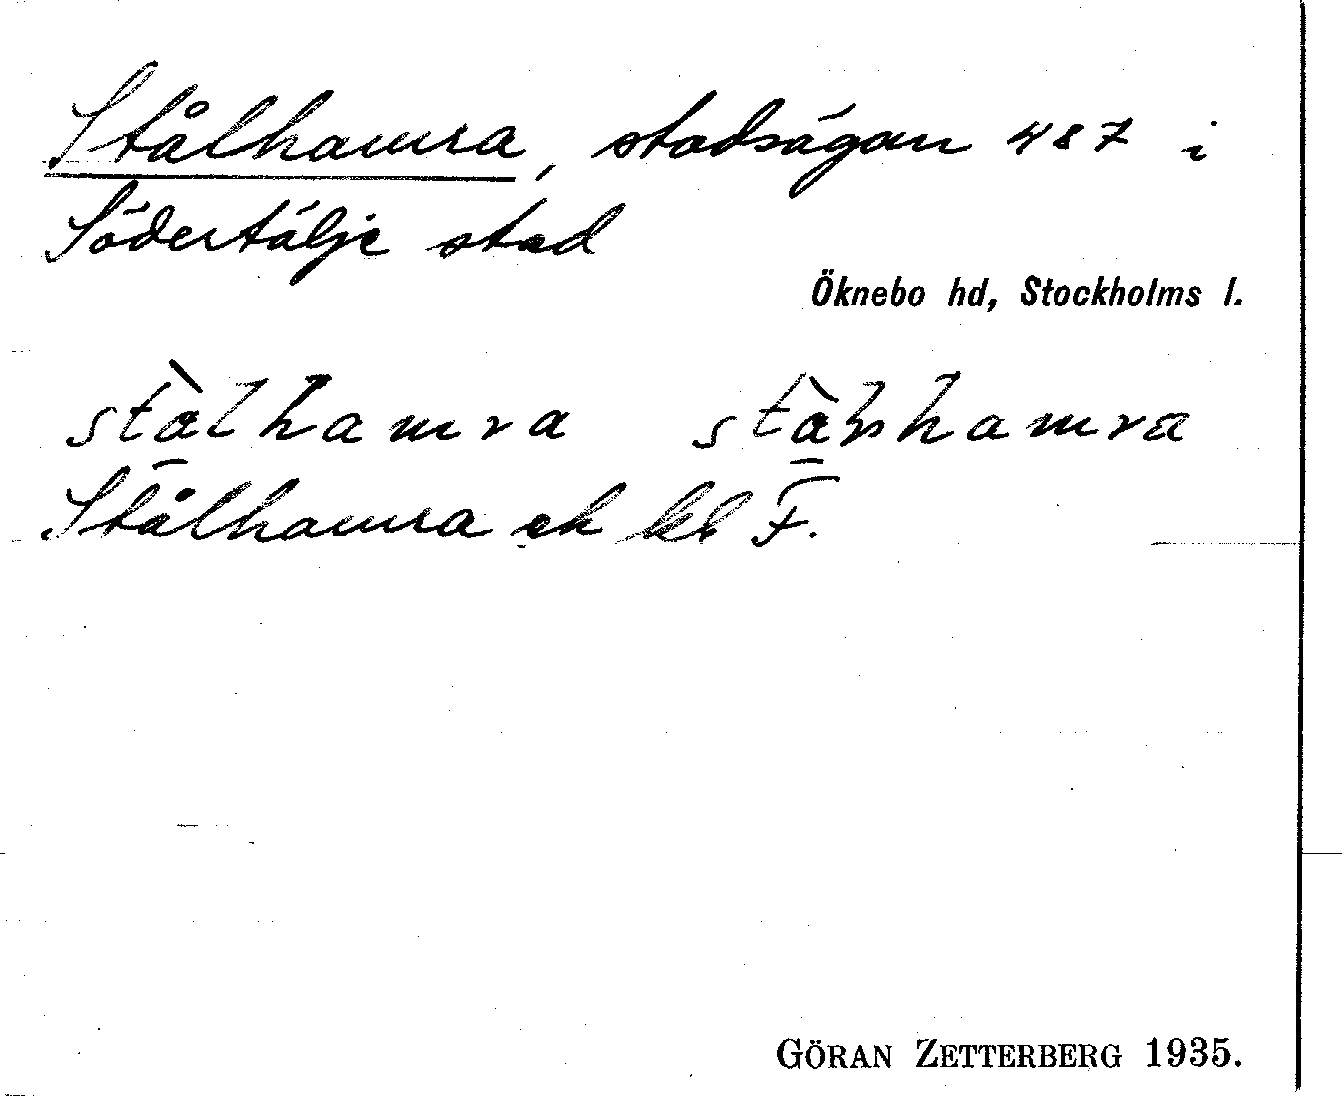 Stålhamra, stadsägan 487 i
Södertälje stad
Öknebo hd, Stockholms l.
stàlhamra stàlshamra
Stålhamra ek kl F.
GÖRAN ZETTERBERG 1935.